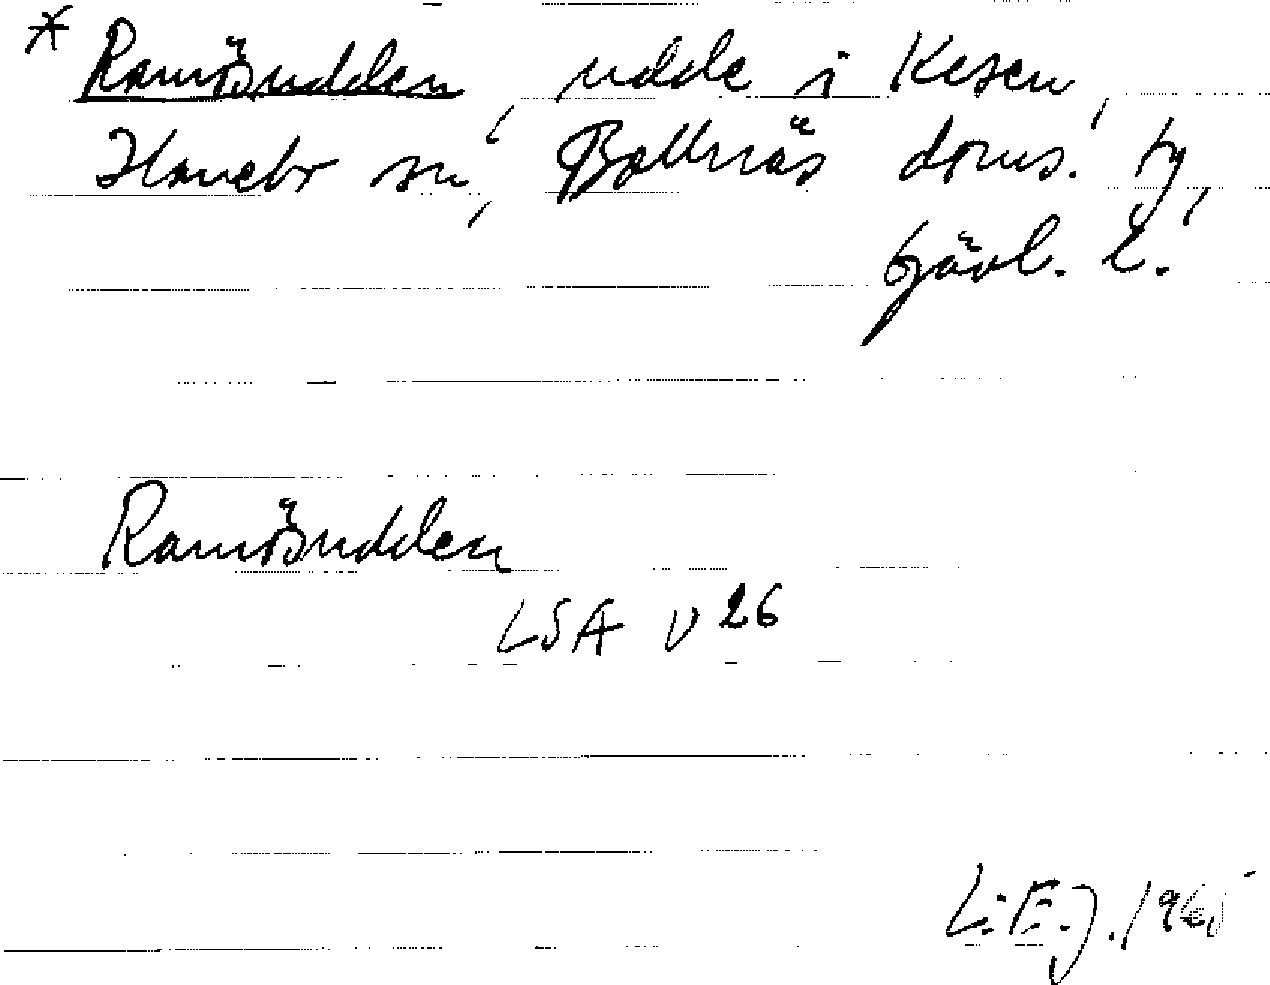 * Ramsöudden, udde i Kesen,
Hanebo sn, Bollnäs doms. tg,
Gävl. l.
Ramsöudden
LSA V 26
L.E.J. 1965